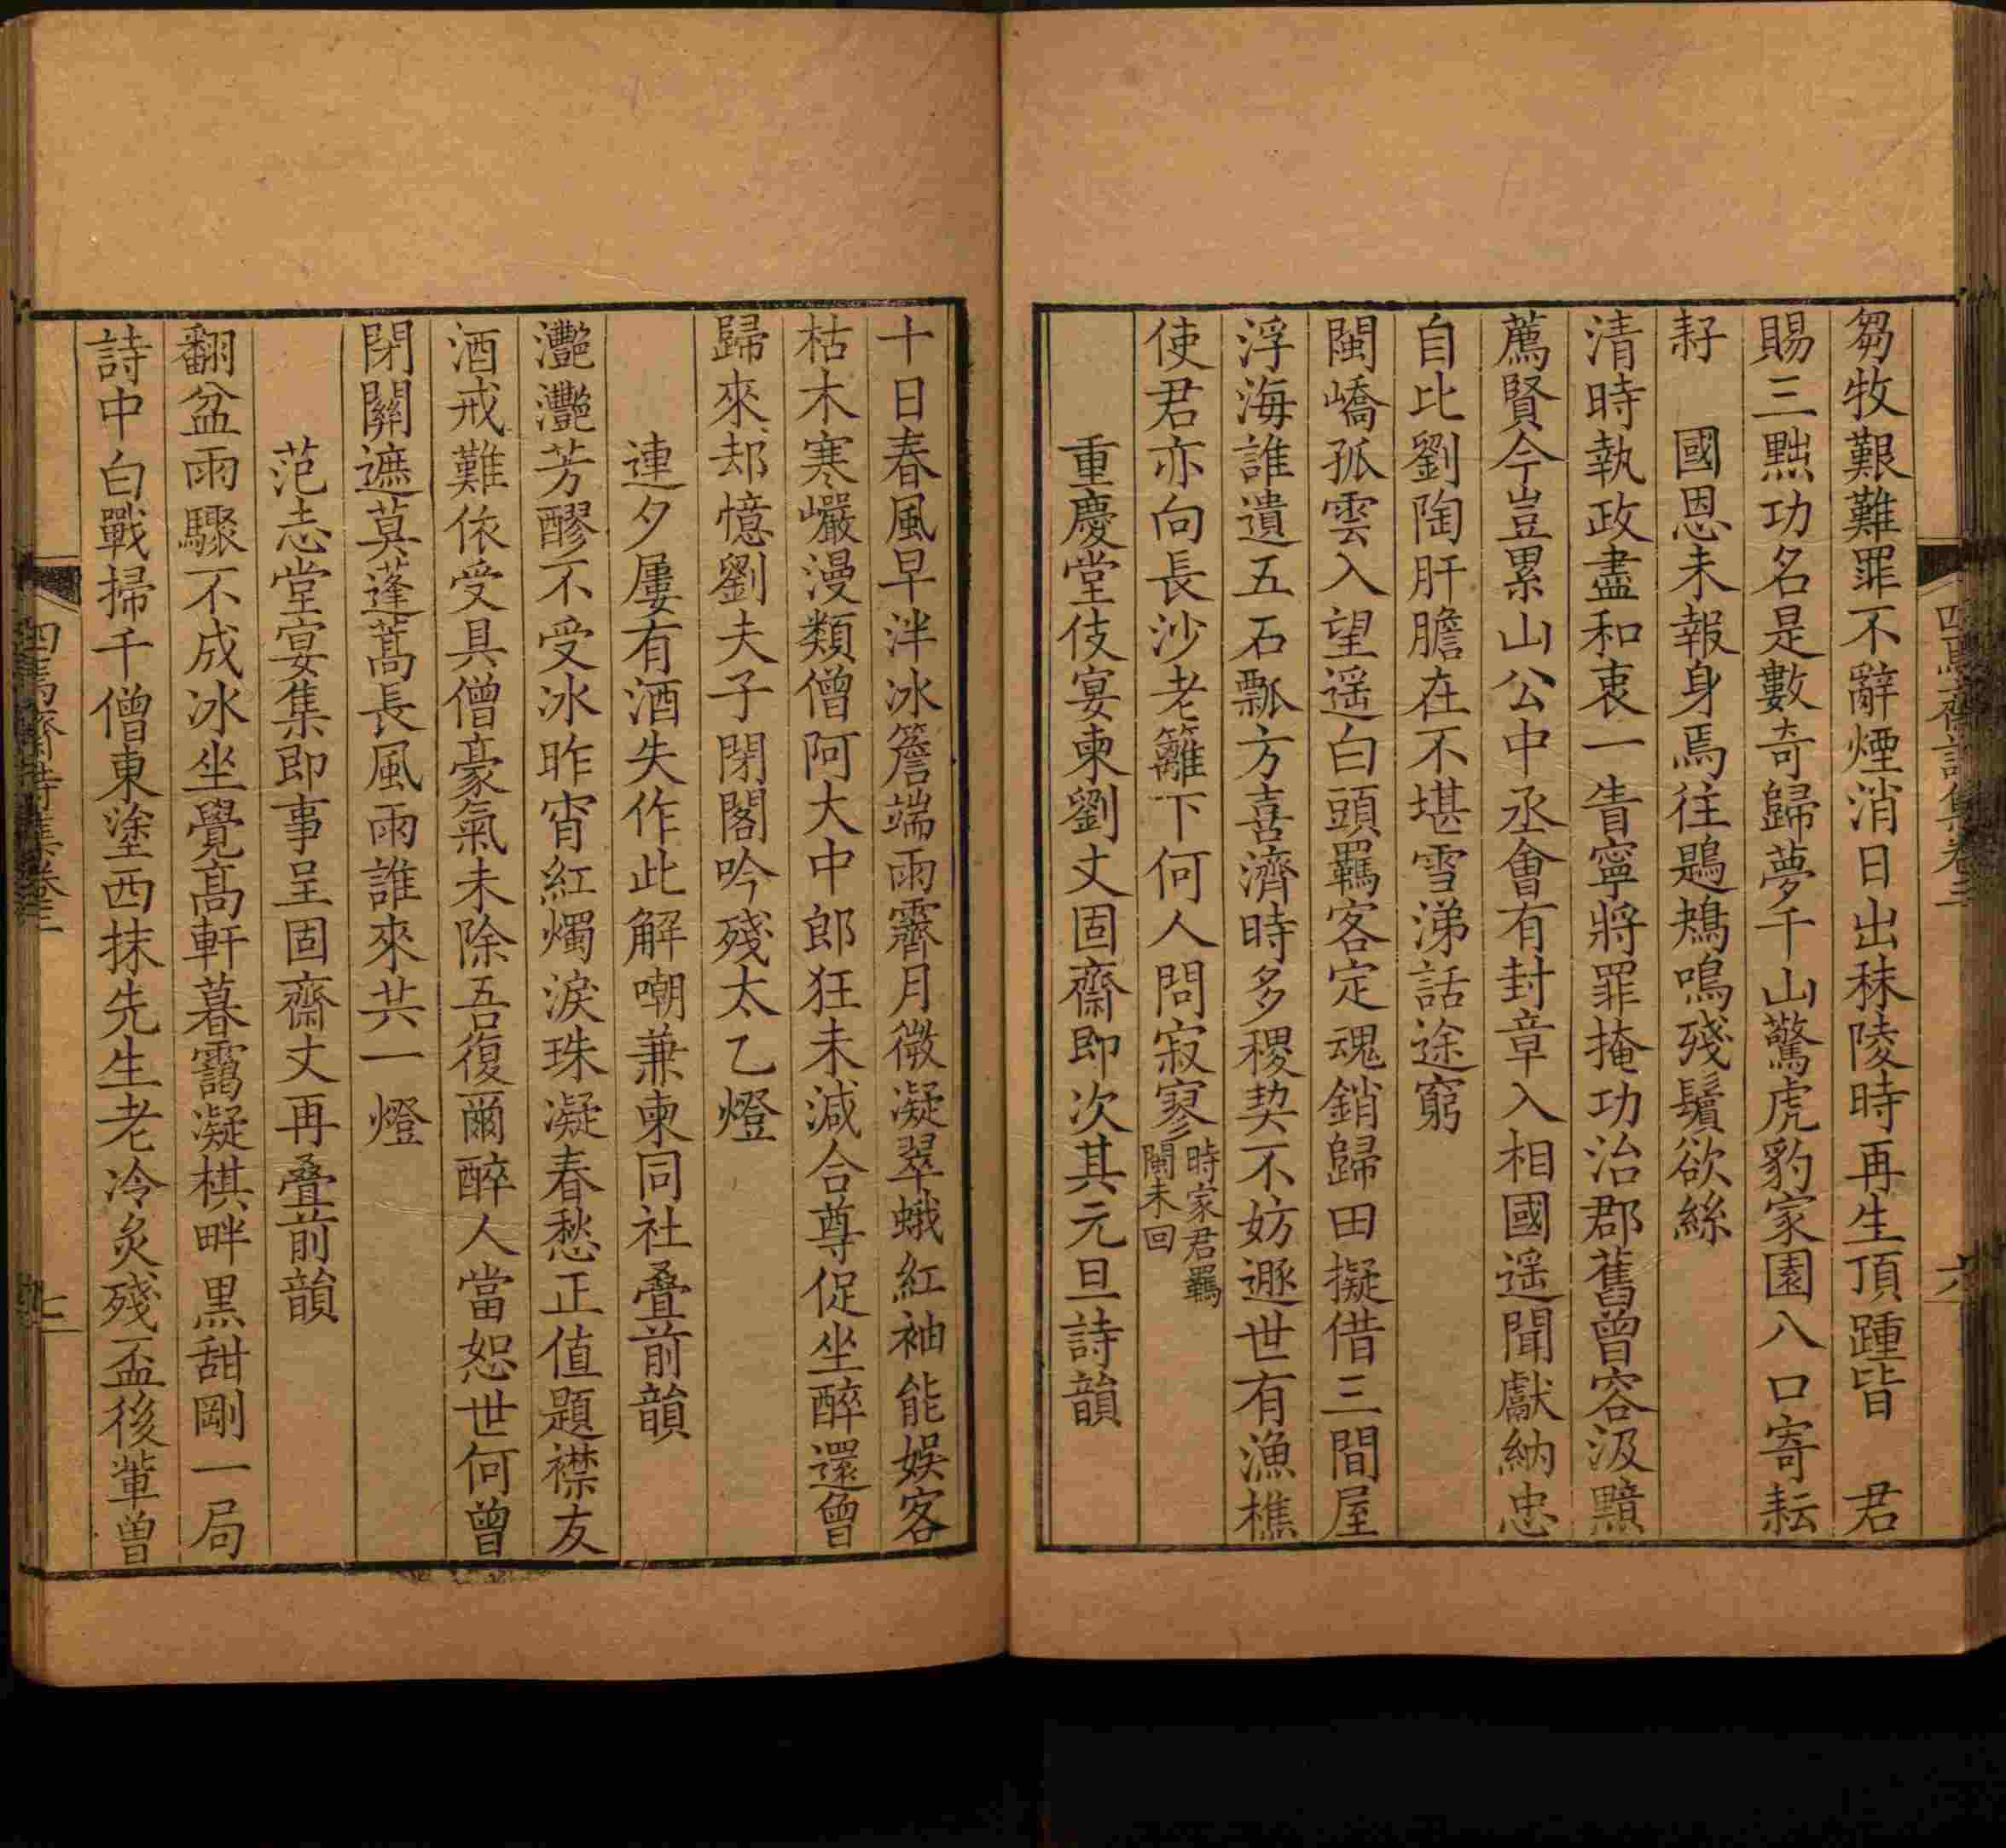 芻牧艱難罪不辭煙消日出秣陵時再生頂踵皆　君
賜三黜功名是數奇歸夢千山驚虎豹家園八口寄耘
耔　國恩未報身焉往鶗鴂鳴殘鬢欲絲
清時執政盡和衷一眚寧將罪掩功治郡舊曾容汲黯
薦賢今豈累山公中丞會有封章入相國遥聞獻納忠
自比劉陶肝膽在不堪雪涕話途窮
閩嶠孤雲入望遥白頭羈客定魂銷歸田擬借三間屋
浮海誰遺五石瓢方喜濟時多稷契不妨遯世有漁樵
使君亦向長沙老籬下何人問寂寥時家君羈閩未回
重慶堂伎宴柬劉丈固齋即次其元旦詩韻
六
十日春風早泮冰簷端雨霽月微凝翠蛾紅袖能娱客
枯木寒巖漫類僧阿大中郎狂未減合尊促坐醉還曾
歸來却憶劉夫子閉閣吟殘太乙燈
連夕屢有酒失作此解嘲兼柬同社叠前韻
灩灩芳醪不受冰昨宵紅燭淚珠凝春愁正值題襟友
酒戒難依受具僧豪氣未除吾復爾醉人當恕世何曾
閉關遮莫蓬蒿長風雨誰來共一燈
范志堂宴集即事呈固齋丈再叠前韻
翻盆雨驟不成冰坐覺高軒暮靄凝棋畔黑甜剛一局
詩中白戰掃千僧東塗西抹先生老冷炙殘盃後輩曾
四焉齋詩集卷三
七